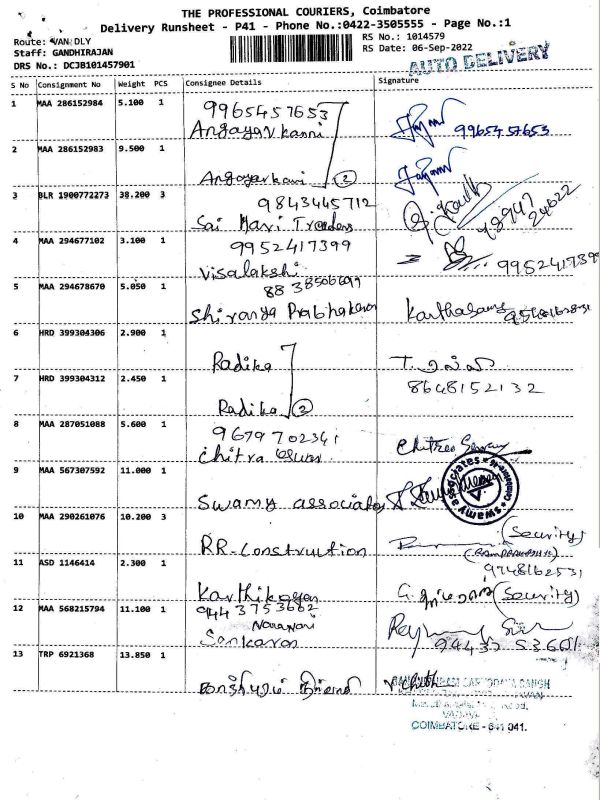 THE PROFESSIONAL COURIERS, Coimbatore
Delivery Runsheet - P41 - Phone No.:0422-3505555 - Page No.:1
Route: VAN DLY
Staff: GANDHIRAJAN
DRS No.: DCJB101457901
RS No.: 1014579
RS Date: 06-Sep-2022
AUTO DELIVERY
S No Consignment No Weight PCS Consignee Details Signature
1 MAA 286152984 5.100 1 9965457653
Angayarkanni 9965457653
2 MAA 286152983 9.500 1
Angayarkani 2
3 BLR 1900772273 38.200 3 9843445712
Sai Hari Traders
4 MAA 294677102 3.100 1 9952417399
Visalakshi 9952417399
5 MAA 294678670 5.050 1
Shiranya Prabhakaran
6 HRD 399304306 2.900 1
Radika
7 HRD 399304312 2.450 1 8648152132
Radika 2
8 MAA 287051088 5.600 1 9679702341
chitra
9 MAA 567307592 11.000 1
Swamy associates
10 MAA 290261076 10.200 3 (Security)
RR-Construction
11 ASD 1146414 2.300 1 9748162531
Karthikeyan (Security)
12 MAA 568215794 11.100 1 9443753662
Sankaran
13 TRP 6921368 13.850 1
COIMBATORE - 641 041.